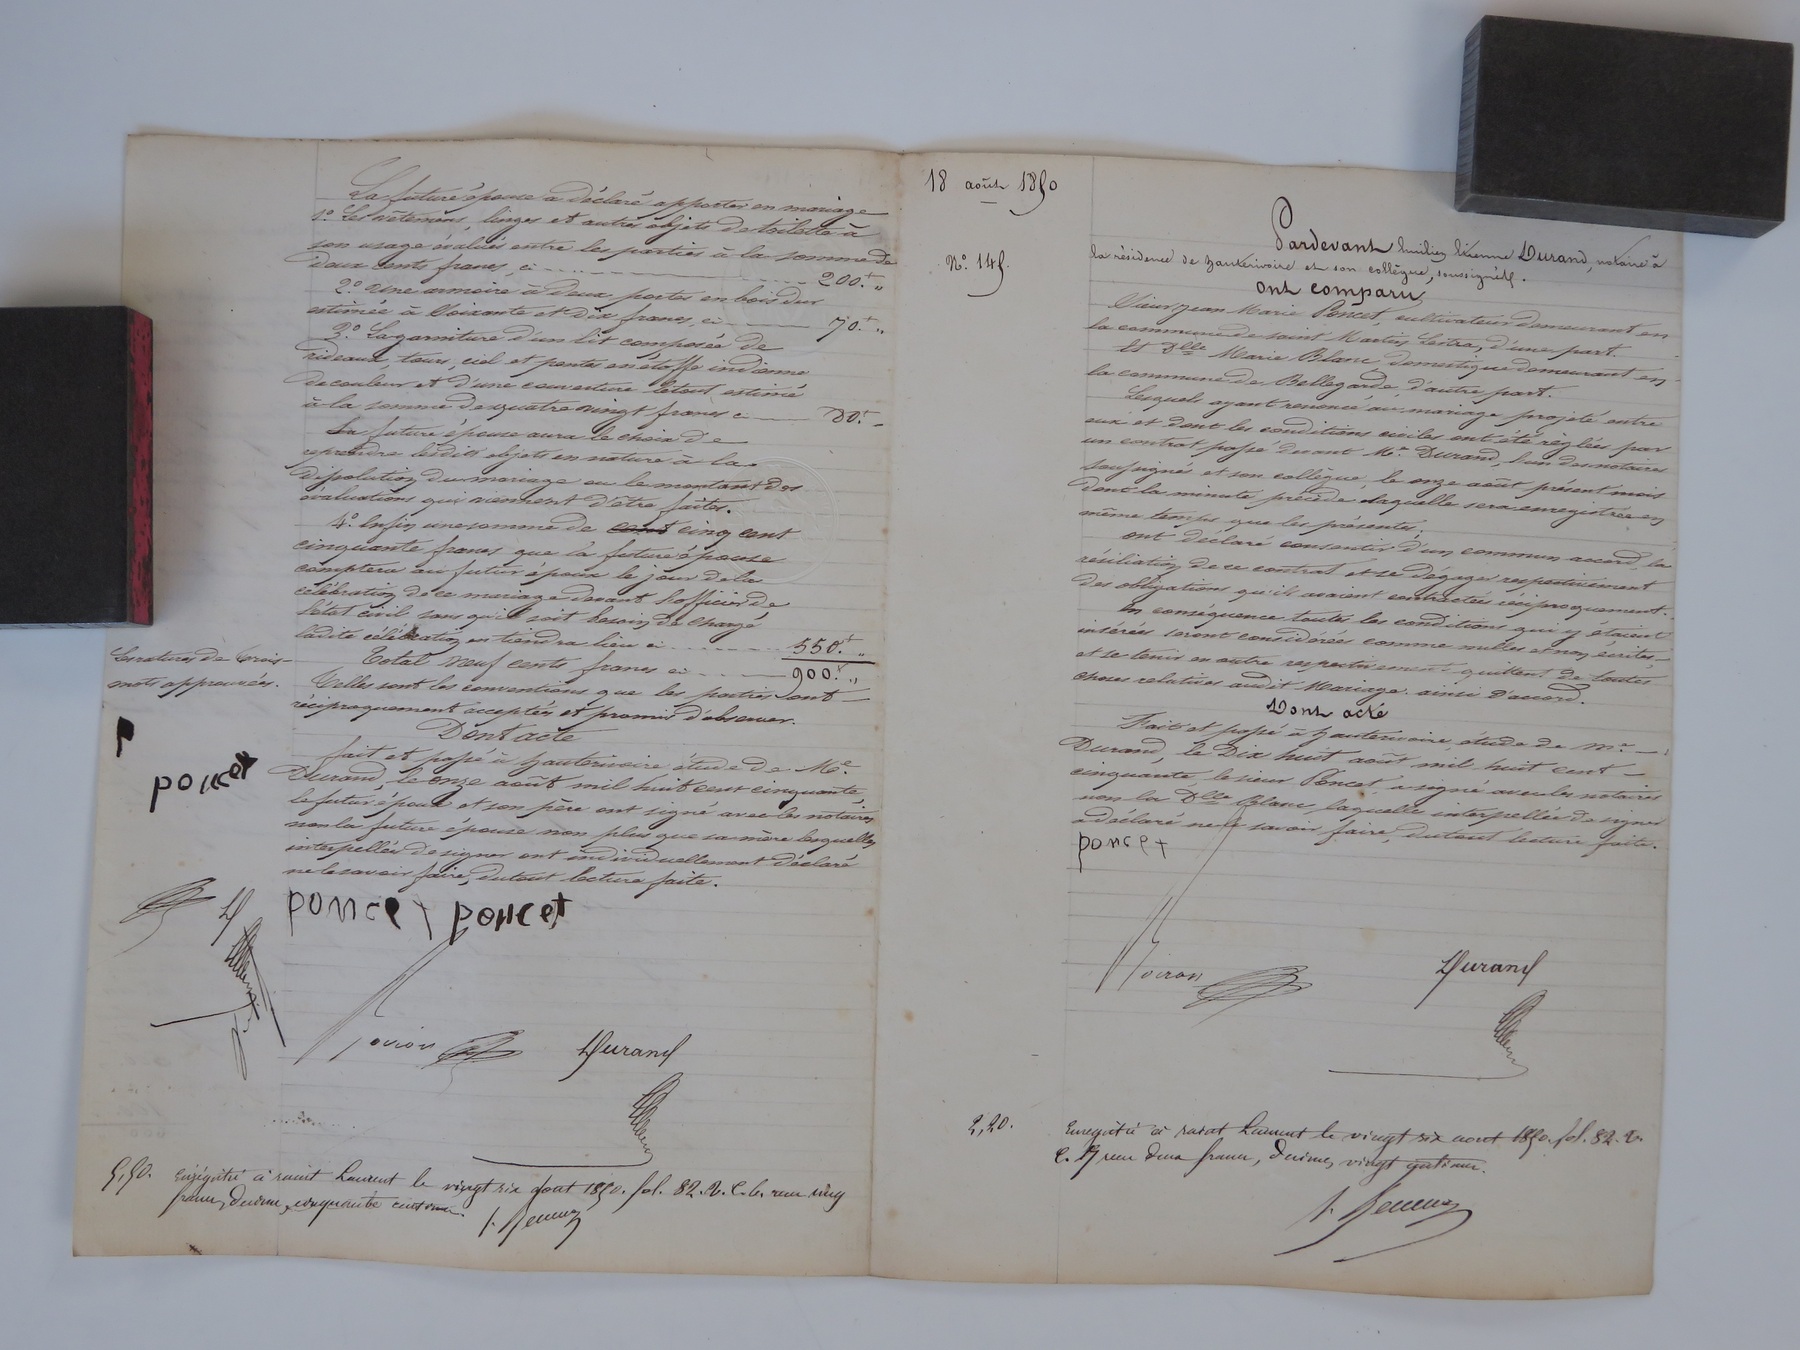 La future épouse a déclaré apporter en mariage
1º Les vêtemens, linges et autres objets de toilette à
son usage évalués entre les parties à la somme de
Deux cents francs, ci 200.f "
2º Une armoire à deux portes en bois dur
estimée à Soixante et Dix francs, ci 70.f "
3º La garniture d'un lit composée de
rideaux, tours, ciel et pentes en étoffe indienne
de couleur et d'une couverture le tout estimé
à la somme de quatre vingt francs c 80.f "
La future épouse aura le choix de
reprendre lesdits objets en nature à la
dissolution du mariage ou le montant des
évaluations qui viennent d'être faites.
4º Enfin une somme de cent cinq cent
cinquante francs que la future épouse
comptera au futur époux le jour de la
célébration de ce mariage devant l'officier de
l'état civil sans qu'il soit besoin de
ladite célébration en tiendra lieu ci 550.f "
Total neuf cents francs ci 900.f "
Telles sont les conventions que les parties ont
réciproquement acceptées et promis d'observer.
Dont acte
fait et passé à hauterivoire étude de Me.
Durand, le onze août mil huit cent cinquante,
le futur époux et son père ont signé avec les notaires
non la future épouse non plus que sa mère lesquelles
interpellées de signer ont individuellement déclaré
ne le savoir faire, du tout lecture faite.
Les ratures de trois
mots approuvées.
poncet
poncet poncet
Durand
5,50. Enregistré à saint Laurent le vingt six aout 1850. fol. 82. V. C. 6. reçu cinq
francs, decime, cinquante centimes.
18 août 1850
Nº 145.
Pardevant Durand, notaire à
la résidence de hauterivoire et son collègue, soussignés.
ont comparu
Sieur Jean Marie Poncet, cultivateur demeurant en
la commune de saint Martin Lestra, d'une part.
Et Dlle Marie Blanc domestique demeurant en
la commune de Bellegarde, d'autre part.
Lesquels ayant renoncé au mariage projeté entre
eux et dont les conditions civiles ont été réglées par
un contrat passé devant Me. Durand, l'un des notaires
soussignés et son collègue, le onze août présent mois
dont la minute précède laquelle sera enregistrée en
même temps que les présentes,
ont déclaré consentir d'un commun accord, la
résiliation de ce contrat et se dégager respectivement
des obligations qu'ils avaient contractées réciproquement.
En conséquence toutes les conditions qui y étaient
insérées seront considérées comme nulles et non écrites,
et se tenir en outre respectivement quittent de toutes
choses relatives audit Mariage. ainsi d'accord.
Dont acte
Fait et passé à hauterivoire, étude de Me.
Durand, le Dix huit août mil huit cent
cinquante, le sieur Poncet, a signé avec les notaires
non la Dlle Blanc, laquelle interpellée de signer
a déclaré ne le savoir faire, du tout lecture faite.
poncet
Durand
2,20. Enregistré à saint Laurent le vingt six aout 1850. fol. 82. V.
reçu deux francs, decime, vingt centimes.